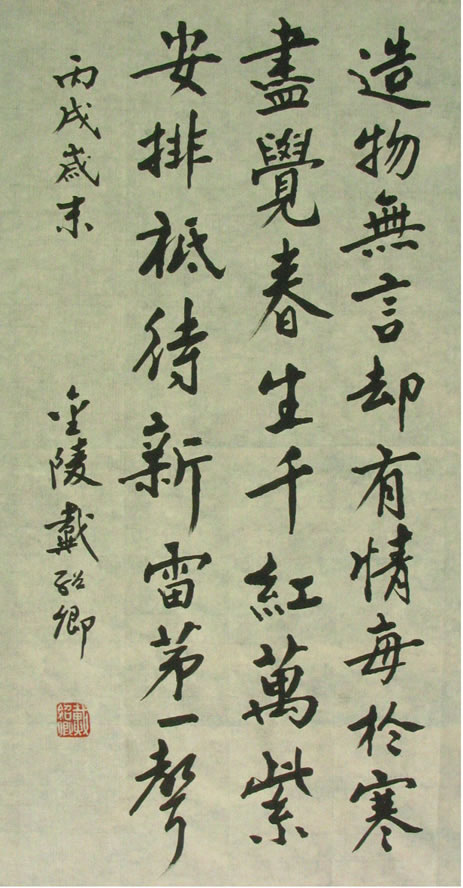 造物無言却有情每於寒
盡覺春生千紅萬紫
安排祗待新雷第一聲
丙戌歲末
金陵戴紹卿
戴紹卿